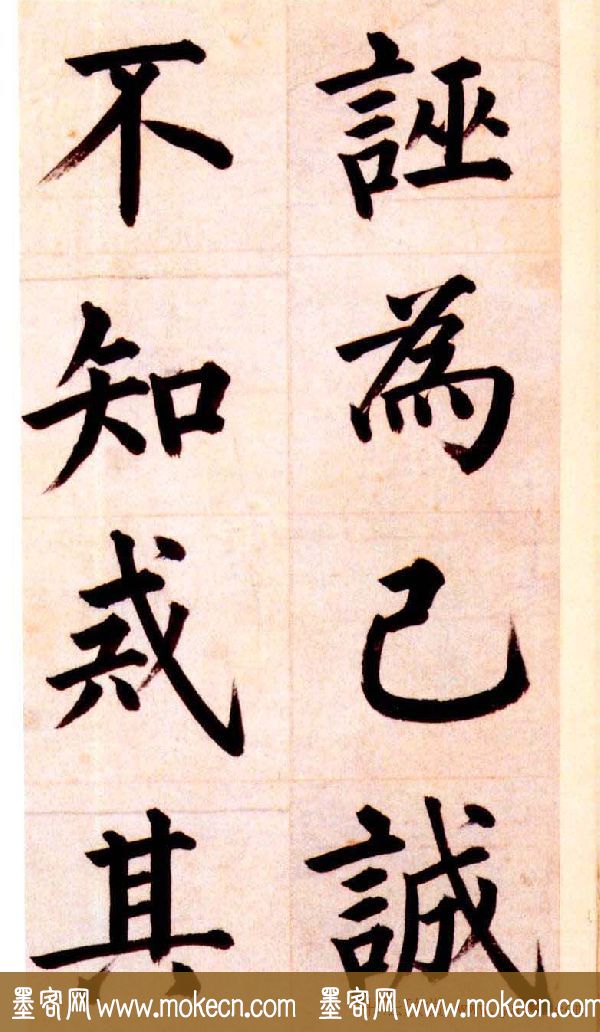 誣為己誠
不知戒其
墨客网 www.mokecn.com 墨客网 www.mokecn.com